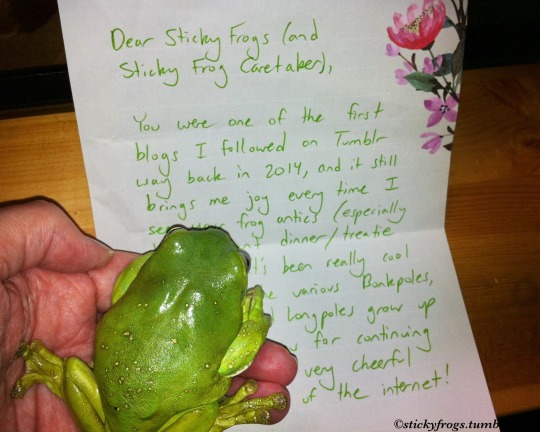 Dear Sticky Frogs (and
Sticky Frog Caretaker),
You were one of the first
blogs I followed on Tumblr
way back in 2014, and it still
brings me joy every time I
frog antics (especially
dinner/treatie
it's been really cool
various Bonkpoles,
Longpoles grow up
for continuing
very cheerful
of the internet!
©stickyfrogs.tumb